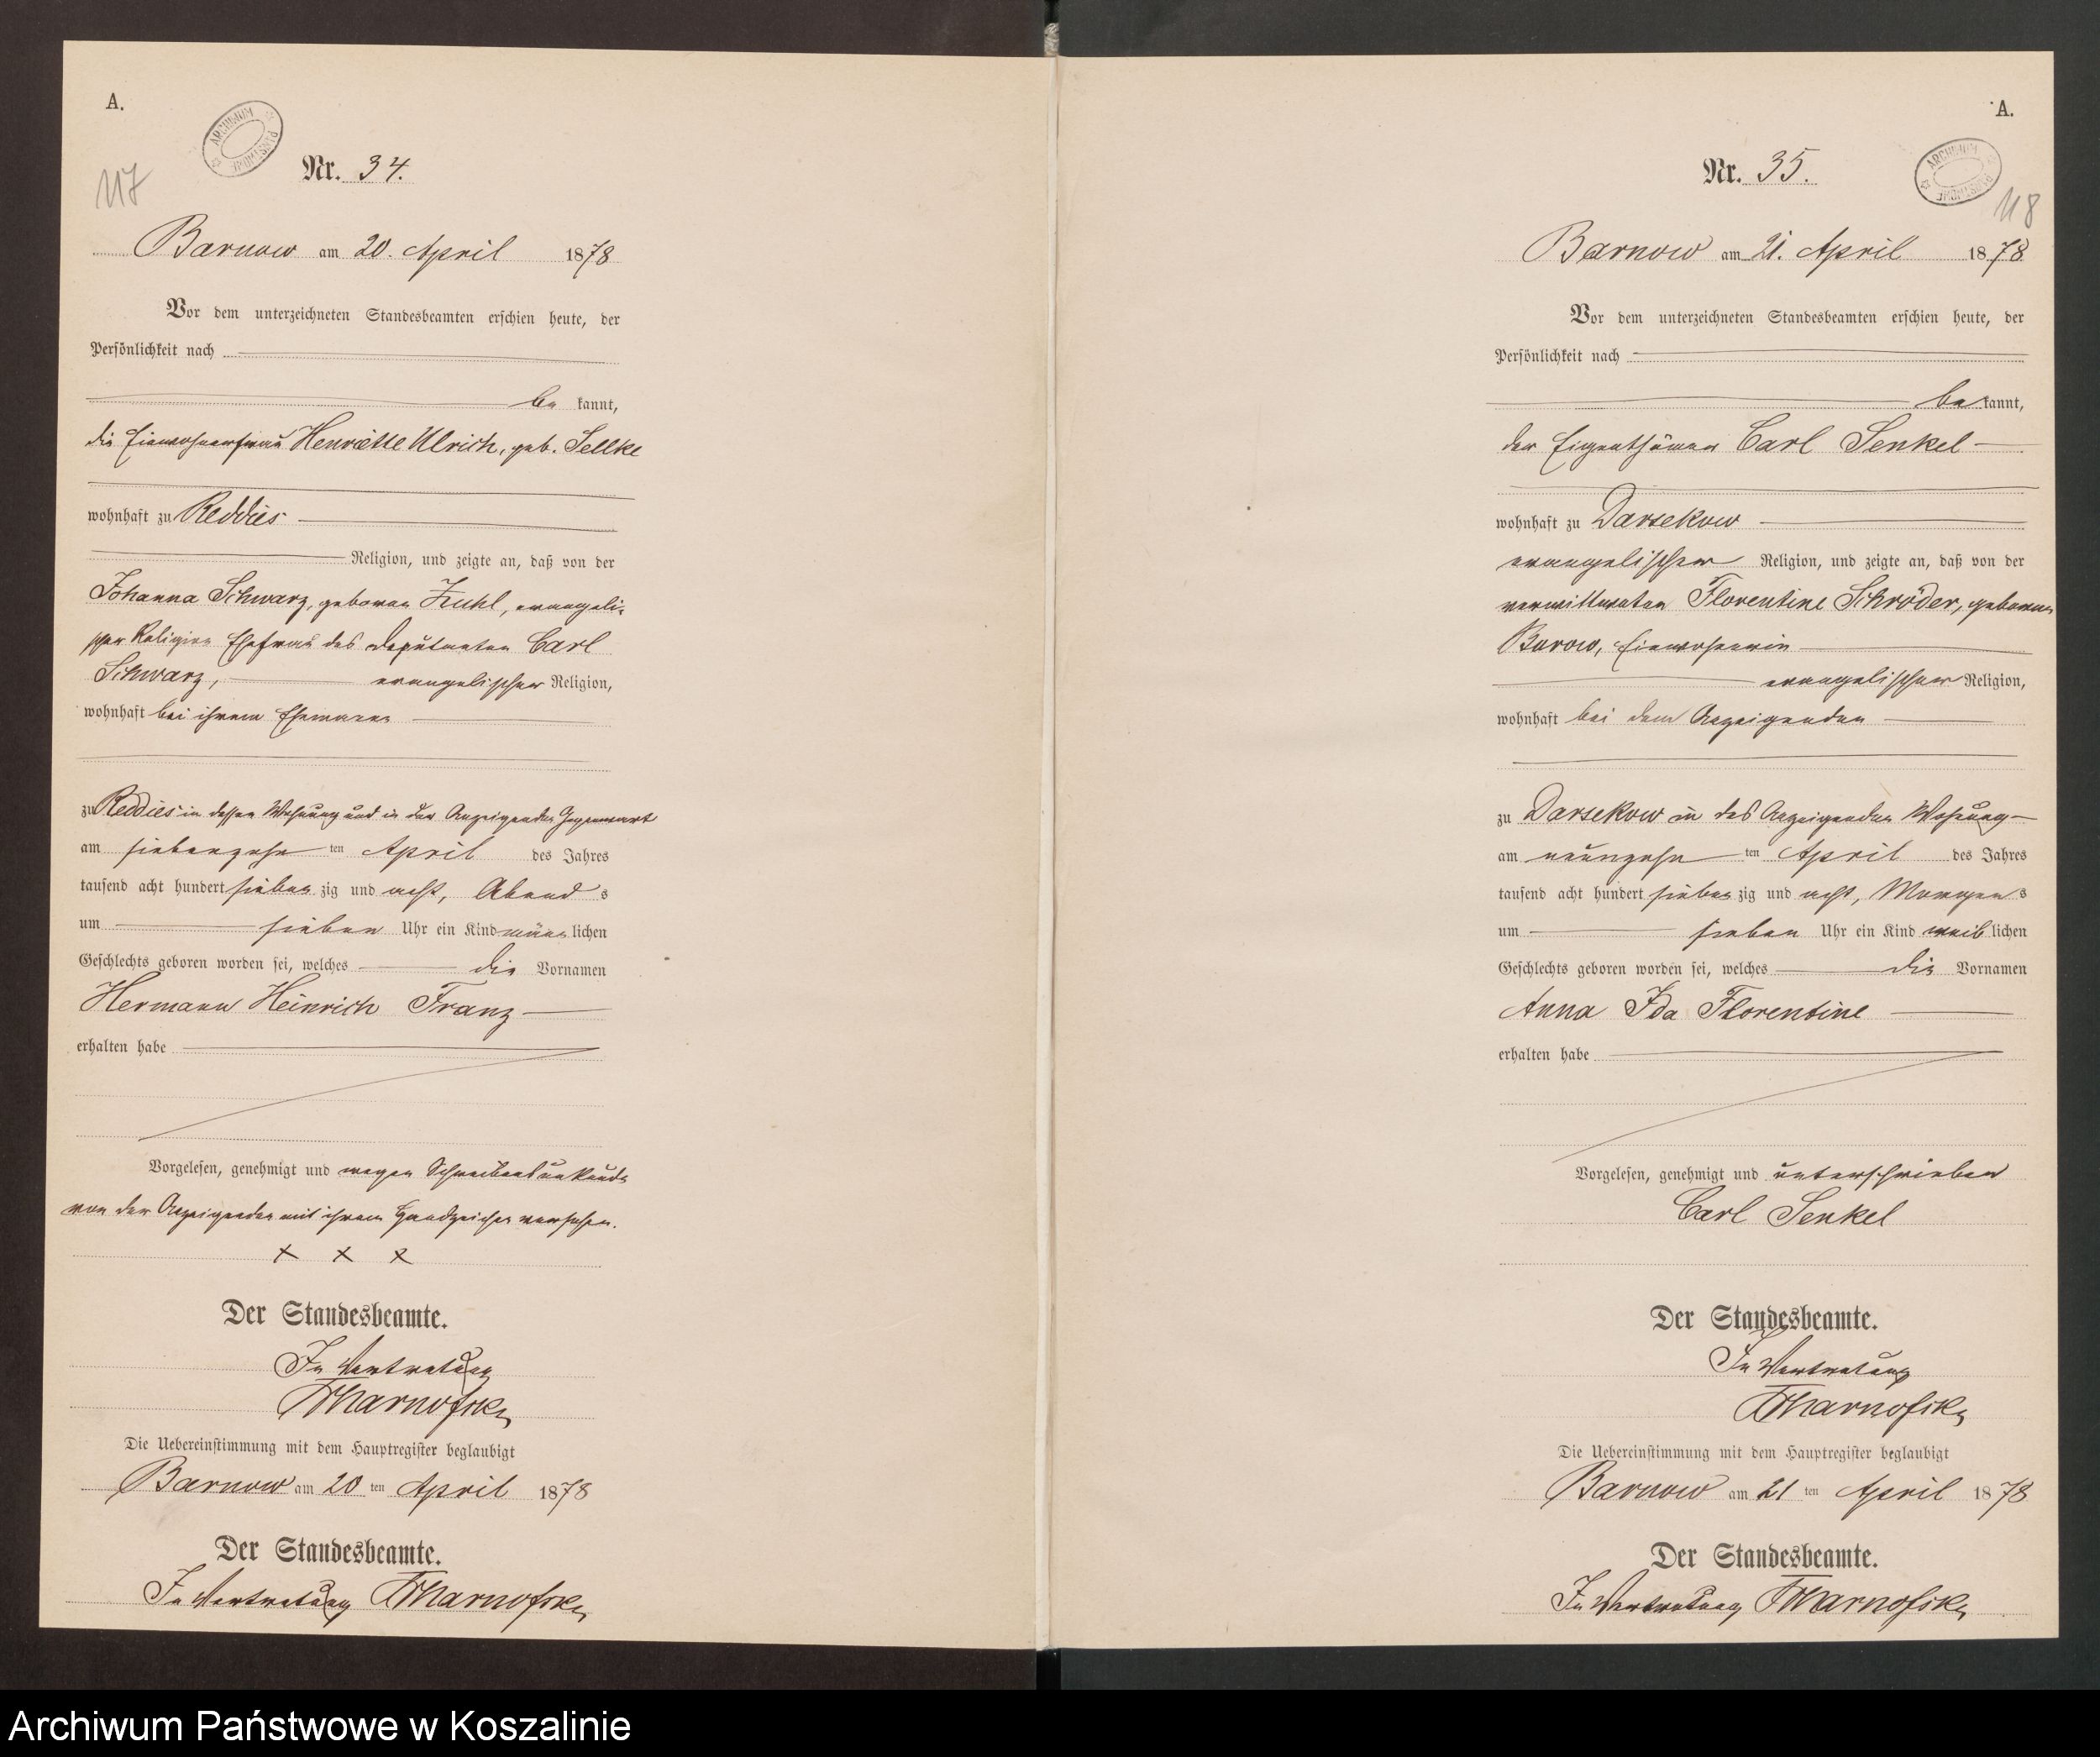 A.
ARCHIWUM PAŃSTWOWE
117
Nr. 34.
Barnow am 20. April 1878
Vor dem unterzeichneten Standesbeamten erschien heute, der
Persönlichkeit nach
be kannt,
die Einwohnerfrau Henriette Ulrich, geb. Sellke
wohnhaft zu Reddies
Religion, und zeigte an, daß von der
Johanna Schwarz, geboren Kuhl, evangeli-
scher Religion Ehefrau des Deputanten Carl
Schwarz, evangelischer Religion,
wohnhaft bei ihrem Ehemann
zu Reddies in dessen Wohnung und in der Anzeigenden Gegenwart
am siebenzehn ten April des Jahres
tausend acht hundert sieben zig und acht, Abend s
um sieben Uhr ein Kind männ lichen
Geschlechts geboren worden sei, welches die Vornamen
Hermann Heinrich Franz
erhalten habe
Vorgelesen, genehmigt und wegen Schreibensunkunde
von der Anzeigenden mit ihrem Handzeichen versehen.
x x x
Der Standesbeamte.
In Vertretung
Die Uebereinstimmung mit dem Hauptregister beglaubigt
Barnow am 20 ten April 1878
Der Standesbeamte.
In Vertretung
A.
ARCHIWUM PAŃSTWOWE
118
Nr. 35.
Barnow am 21. April 1878
Vor dem unterzeichneten Standesbeamten erschien heute, der
Persönlichkeit nach
be kannt,
der Eigenthümer Carl Senkel
wohnhaft zu Darsekow
evangelischer Religion, und zeigte an, daß von der
verwittweten Florentine Schröder, geborene
Burow, Einwohnerin
evangelischer Religion,
wohnhaft bei dem Anzeigenden
zu Darsekow in des Anzeigenden Wohnung
am neunzehn ten April des Jahres
tausend acht hundert sieben zig und acht, Morgen s
um sieben Uhr ein Kind weib lichen
Geschlechts geboren worden sei, welches die Vornamen
Anna Ida Florentine
erhalten habe
Vorgelesen, genehmigt und unterschrieben
Carl Senkel
Der Standesbeamte.
In Vertretung
Die Uebereinstimmung mit dem Hauptregister beglaubigt
Barnow am 21 ten April 1878
Der Standesbeamte.
In Vertretung
Archiwum Państwowe w Koszalinie